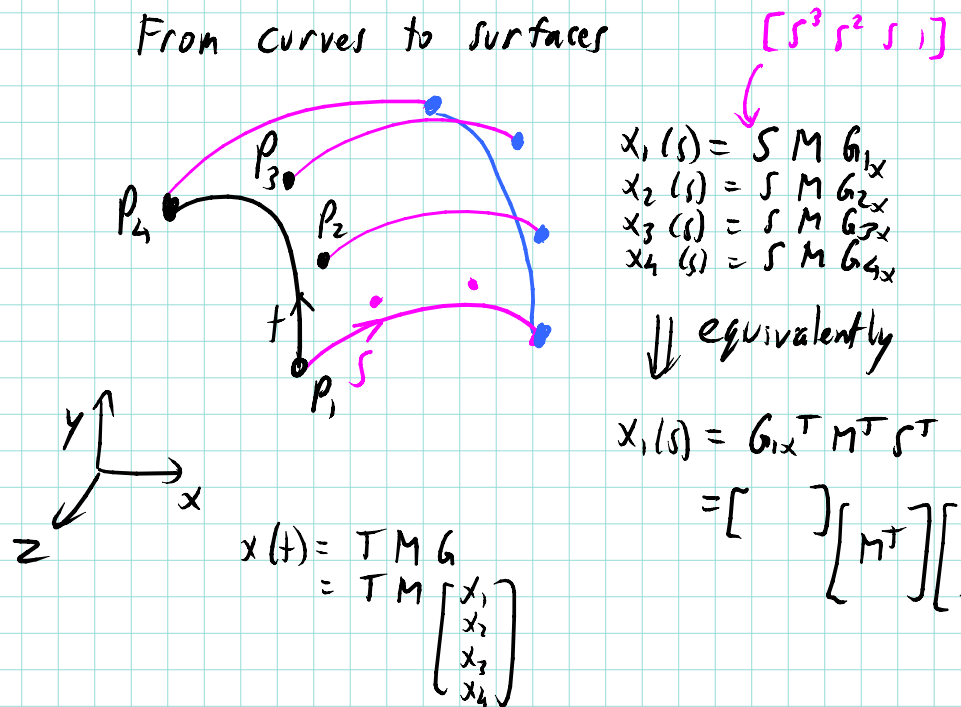 From curves to surfaces
[s³ s² s 1]
P₃
P₄
P₂
t
s
P₁
x₁(s) = S M G₁ₓ
x₂(s) = S M G₂ₓ
x₃(s) = S M G₃ₓ
x₄(s) = S M G₄ₓ
⇓ equivalently
x₁(s) = G₁ₓᵀ Mᵀ Sᵀ
= [ ] [Mᵀ] [
y
x
z
x(t) = T M G
= T M [x₁
x₂
x₃
x₄]